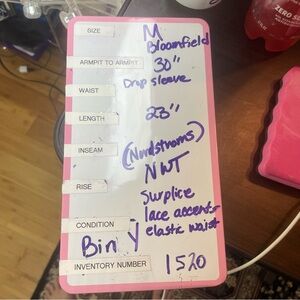 SIZE M
Bloomfield
ARMPIT TO ARMPIT 30"
Drop sleeve
WAIST
LENGTH 23"
INSEAM (Nordstroms)
NWT
RISE
Surplice
lace accents
CONDITION elastic waist
Bin Y
INVENTORY NUMBER 1520
ZERO